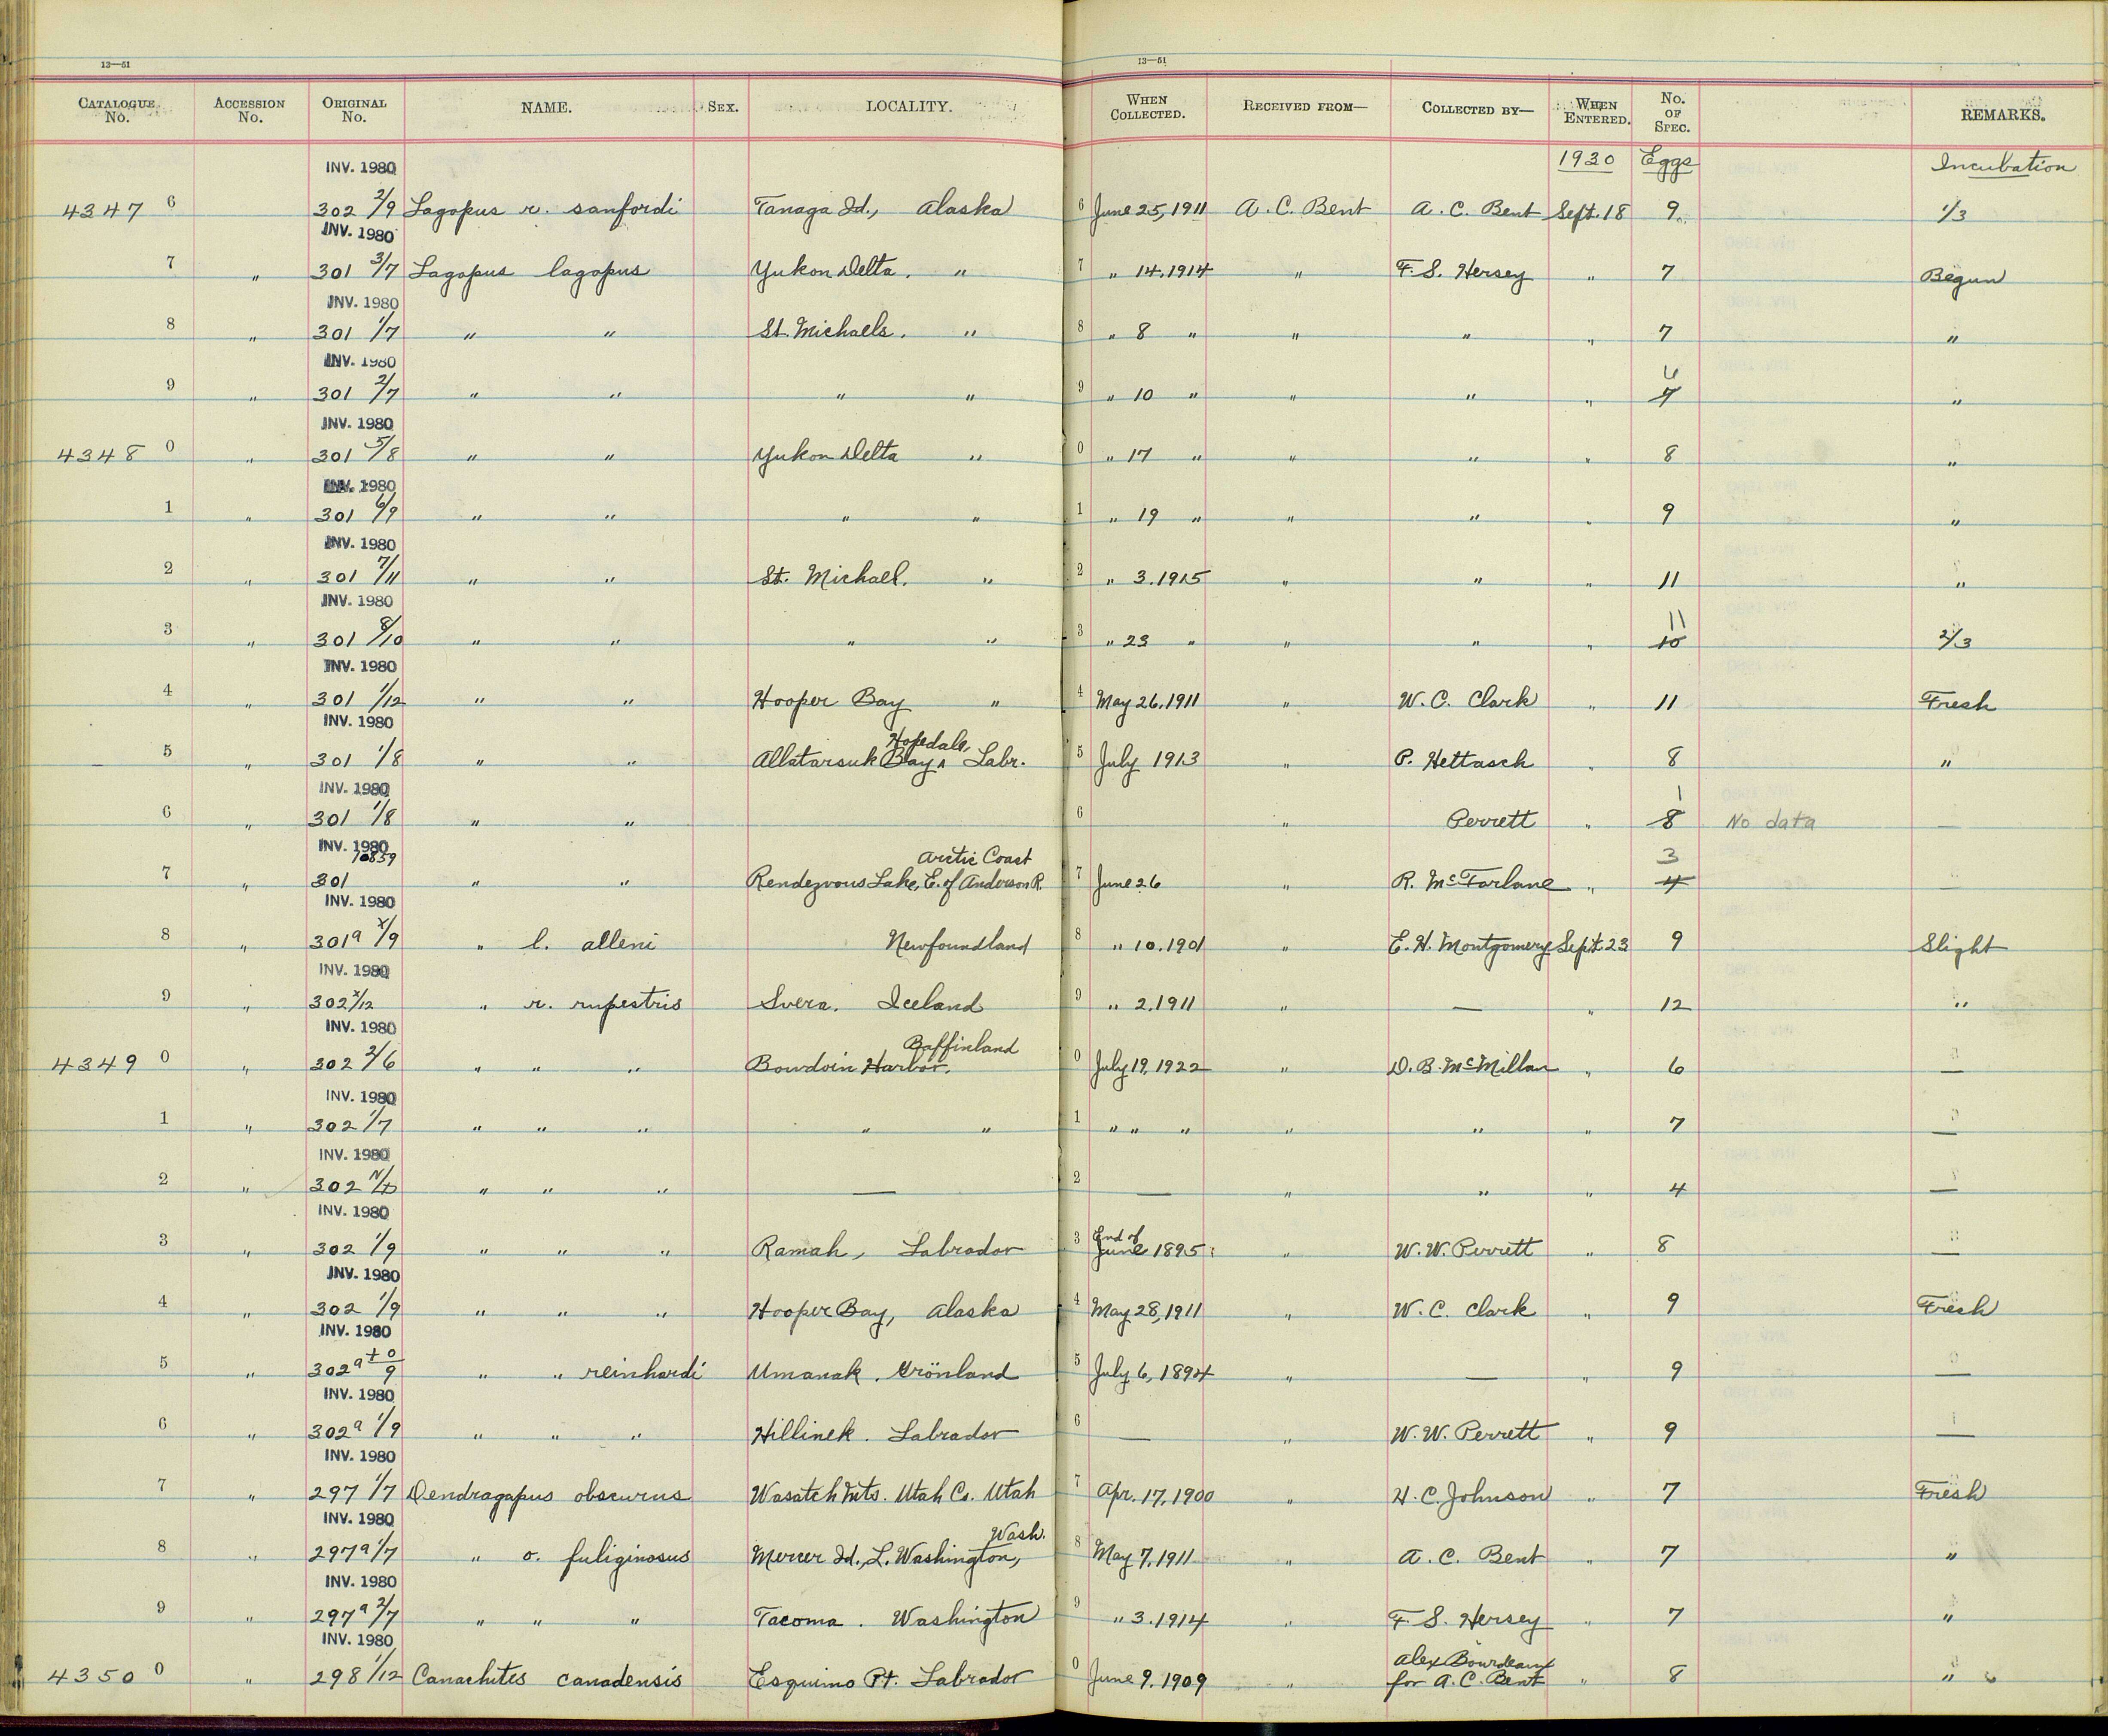 13—51 13—51
CATALOGUE No. ACCESSION No. ORIGINAL No. NAME. SEX. LOCALITY. WHEN COLLECTED. RECEIVED FROM— COLLECTED BY— WHEN ENTERED. No. OF SPEC. REMARKS.
INV. 1980 1930 Eggs Incubation
4347 6 302 2/9 Lagopus r. sanfordi Tanaga Id., Alaska 6 June 25, 1911 A. C. Bent A. C. Bent Sept. 18 9 1/3
INV. 1980
7 " 301 3/7 Lagopus lagopus Yukon Delta. " 7 " 14. 1914 " F. S. Hersey " 7 Begun
INV. 1980
8 " 301 1/7 " " St. Michaels. " 8 " 8 " " " " 7 "
INV. 1980
6
9 " 301 2/7 " " " " 9 " 10 " " " " 7 "
INV. 1980
4348 0 " 301 5/8 " " Yukon Delta " 0 " 17 " " " " 8 "
INV. 1980
1 " 301 6/9 " " " " 1 " 19 " " " " 9 "
INV. 1980
2 " 301 7/11 " " St. Michael. " 2 " 3. 1915 " " " 11 "
INV. 1980
11
3 " 301 8/10 " " " " 3 " 23 " " " " 10 2/3
INV. 1980
4 " 301 1/12 " " Hooper Bay " 4 May 26. 1911 " W. C. Clark " 11 Fresh
INV. 1980
Hopedale,
5 " 301 1/8 " " Allatarsuk Bay ^ Labr. 5 July 1913 " P. Hettasch " 8 "
INV. 1980
1
6 " 301 1/8 " " 6 " Perrett " 8 No data —
INV. 1980
10859 Arctic Coast 3
7 " 301 " " Rendezvous Lake, E. of Anderson R. 7 June 26 " R. McFarlane " 4 —
INV. 1980
8 " 301a x/9 " l. alleni Newfoundland 8 " 10. 1901 " E. H. Montgomery Sept. 23 9 Slight
INV. 1980
9 " 302 x/12 " r. rupestris Svera. Iceland 9 " 2. 1911 " — " 12 "
INV. 1980
Baffinland
4349 0 " 302 2/6 " " " Bowdoin Harbor. 0 July 19, 1922 " D. B. McMillan " 6 —
INV. 1980
1 " 302 1/7 " " " " " 1 " " " " " " 7 —
INV. 1980
2 " 302 " " " — 2 — " " " 4 —
INV. 1980
End of
3 " 302 1/9 " " " Ramah, Labrador 3 June 1895 " W. W. Perrett " 8 —
INV. 1980
4 " 302 1/9 " " " Hooper Bay, Alaska 4 May 28, 1911 " W. C. Clark " 9 Fresh
INV. 1980
5 " 302a +0/9 " " reinhardi Umanak. Grönland 5 July 6, 1894 " — " 9 —
INV. 1980
6 " 302a 1/9 " " " Hillinek. Labrador 6 — " W. W. Perrett " 9 —
INV. 1980
7 " 297 1/7 Dendragapus obscurus Wasatch Mts. Utah Co. Utah 7 Apr. 17, 1900 " H. C. Johnson " 7 Fresh
INV. 1980
Wash.
8 " 297a 1/7 " o. fuliginosus Mercer Id., L. Washington, 8 May 7, 1911 " A. C. Bent " 7 "
INV. 1980
9 " 297a 2/7 " " " Tacoma. Washington 9 " 3. 1914 " F. S. Hersey " 7 "
INV. 1980
Alex Bourdeaux
4350 0 " 298 1/12 Canachites canadensis Esquimo Pt. Labrador 0 June 9. 1909 " for A. C. Bent " 8 "